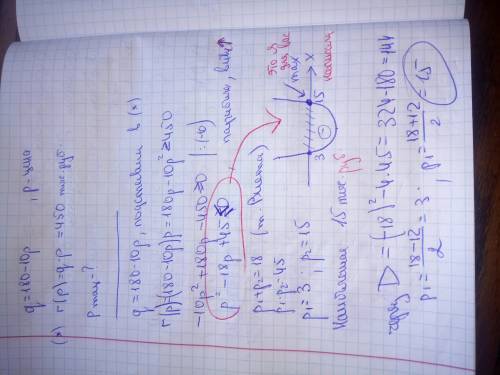 q=180-10p , p-цена
(*) r(p)=q·p = 450 тыс.руб.
p max-?
q=180-10p, подставим в (*)
r(p)=(180-10p)p=180p-10p²≥450
-10p²+180p-450≥0 |:(-10)
p²-18p+45≤0 парабола, ветви ↑
p₁+p₂=18 (т. Виета)
p₁·p₂=45
p₁=3 ; p₂=15
это я для вас написала
max
3 - 15 x
Наибольшая 15 тыс. руб
через D=(-18)²-4·45=324-180=144
p₁=18-12/2=3 ; p₁=18+12/2=15